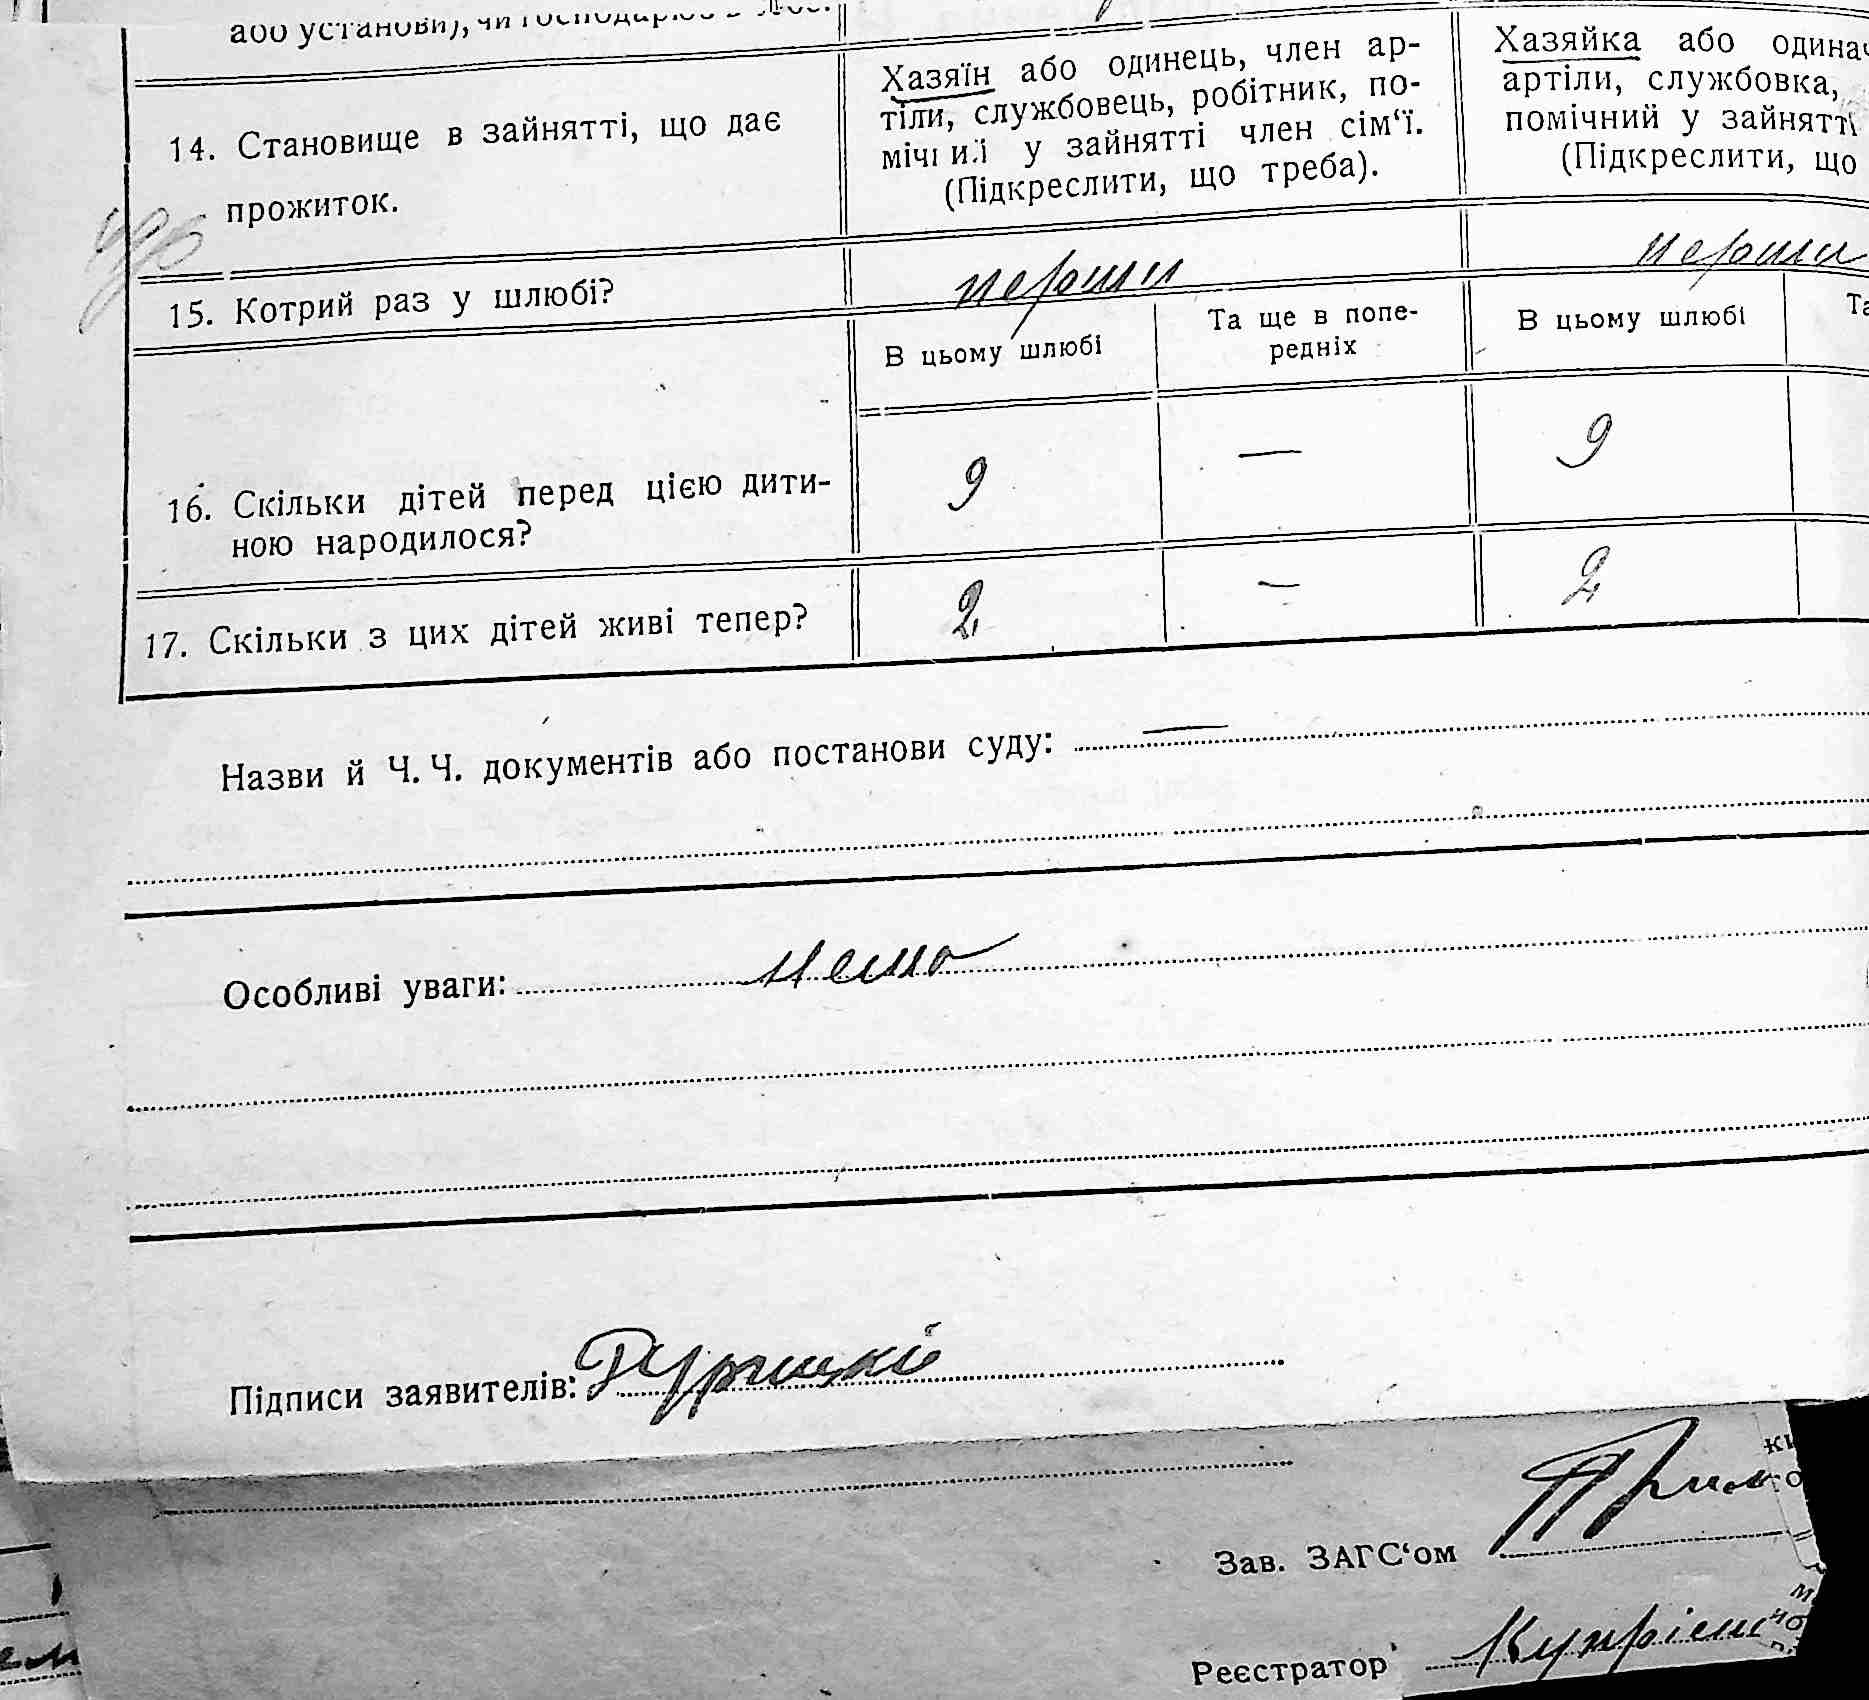 або установи), чи господарює
14. Становище в зайнятті, що дає
прожиток.
Хазяїн або одинець, член ар-
тіли, службовець, робітник, по-
мічний у зайнятті член сім‘ї.
(Підкреслити, що треба).
Хазяйка або одинач
артіли, службовка,
помічний у зайнятті
(Підкреслити, що
15. Котрий раз у шлюбі?
перший
перший
В цьому шлюбі
Та ще в попе-
редніх
В цьому шлюбі
Та
16. Скільки дітей перед цією дити-
ною народилося?
9
—
9
17. Скільки з цих дітей живі тепер?
2
—
2
Назви й Ч. Ч. документів або постанови суду: —
Особливі уваги: нема
Підписи заявителів:
Зав. ЗАГС‘ом
Реєстратор